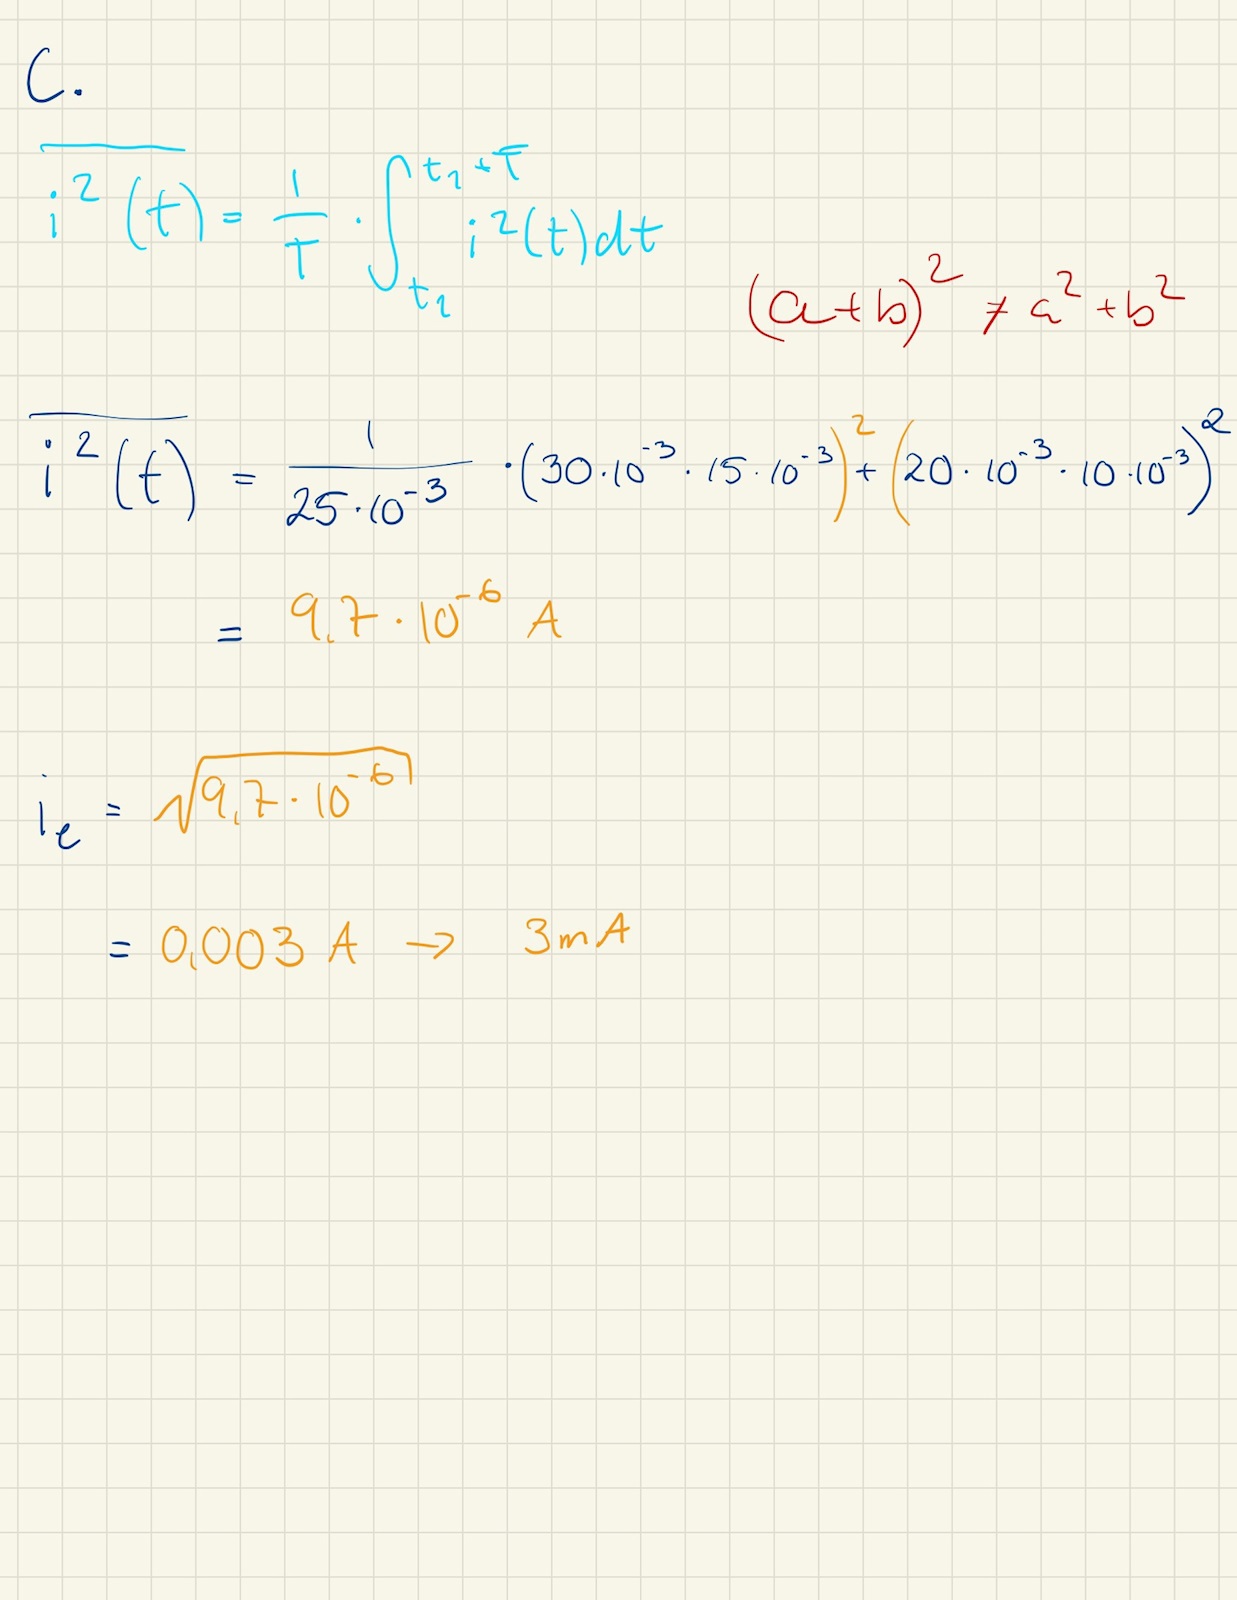 C.
i²(t) = 1/T · ∫ t₂ + T t₂ i²(t)dt
(a+b)² ≠ a² + b²
i²(t) = 1/25·10⁻³ · (30·10⁻³ · 15·10⁻³)² + (20·10⁻³ · 10·10⁻³)²
= 9,7 · 10⁻⁶ A
iₑ = √9,7 · 10⁻⁶
= 0,003 A → 3mA